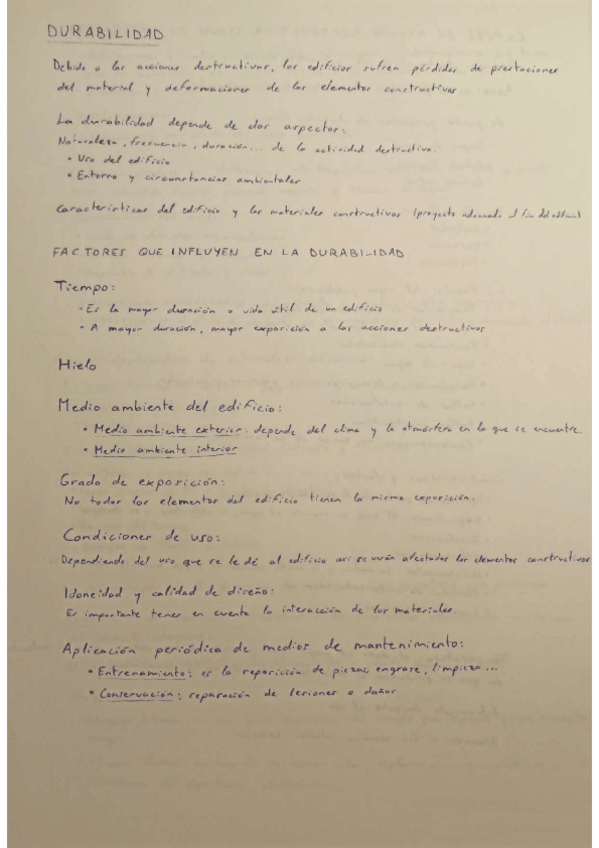 DURABILIDAD
Debido a las acciones destructivas, los edificios sufren pérdidas de prestaciones
del material y deformaciones de los elementos constructivos
La durabilidad depende de dos aspectos:
Naturaleza, frecuencia, duración... de la actividad destructiva.
• Uso del edificio
• Entorno y circunstancias ambientales
Características del edificio y los materiales constructivos (proyecto adecuado al fin del
FACTORES QUE INFLUYEN EN LA DURABILIDAD
Tiempo:
• Es la mayor duración o vida útil de un edificio
• A mayor duración, mayor exposición a las acciones destructivas
Hielo
Medio ambiente del edificio:
• Medio ambiente exterior: depende del clima y la atmósfera en la que se encuentre.
• Medio ambiente interior
Grado de exposición:
No todos los elementos del edificio tienen la misma exposición.
Condiciones de uso:
Dependiendo del uso que se le dé al edificio así se verán afectados los elementos constructivos
Idoneidad y calidad de diseño:
Es importante tener en cuenta la interacción de los materiales
Aplicación periódica de medios de mantenimiento:
• Entrenamiento: es la reposición de piezas, engrase, limpieza...
• Conservación: reparación de lesiones o daños